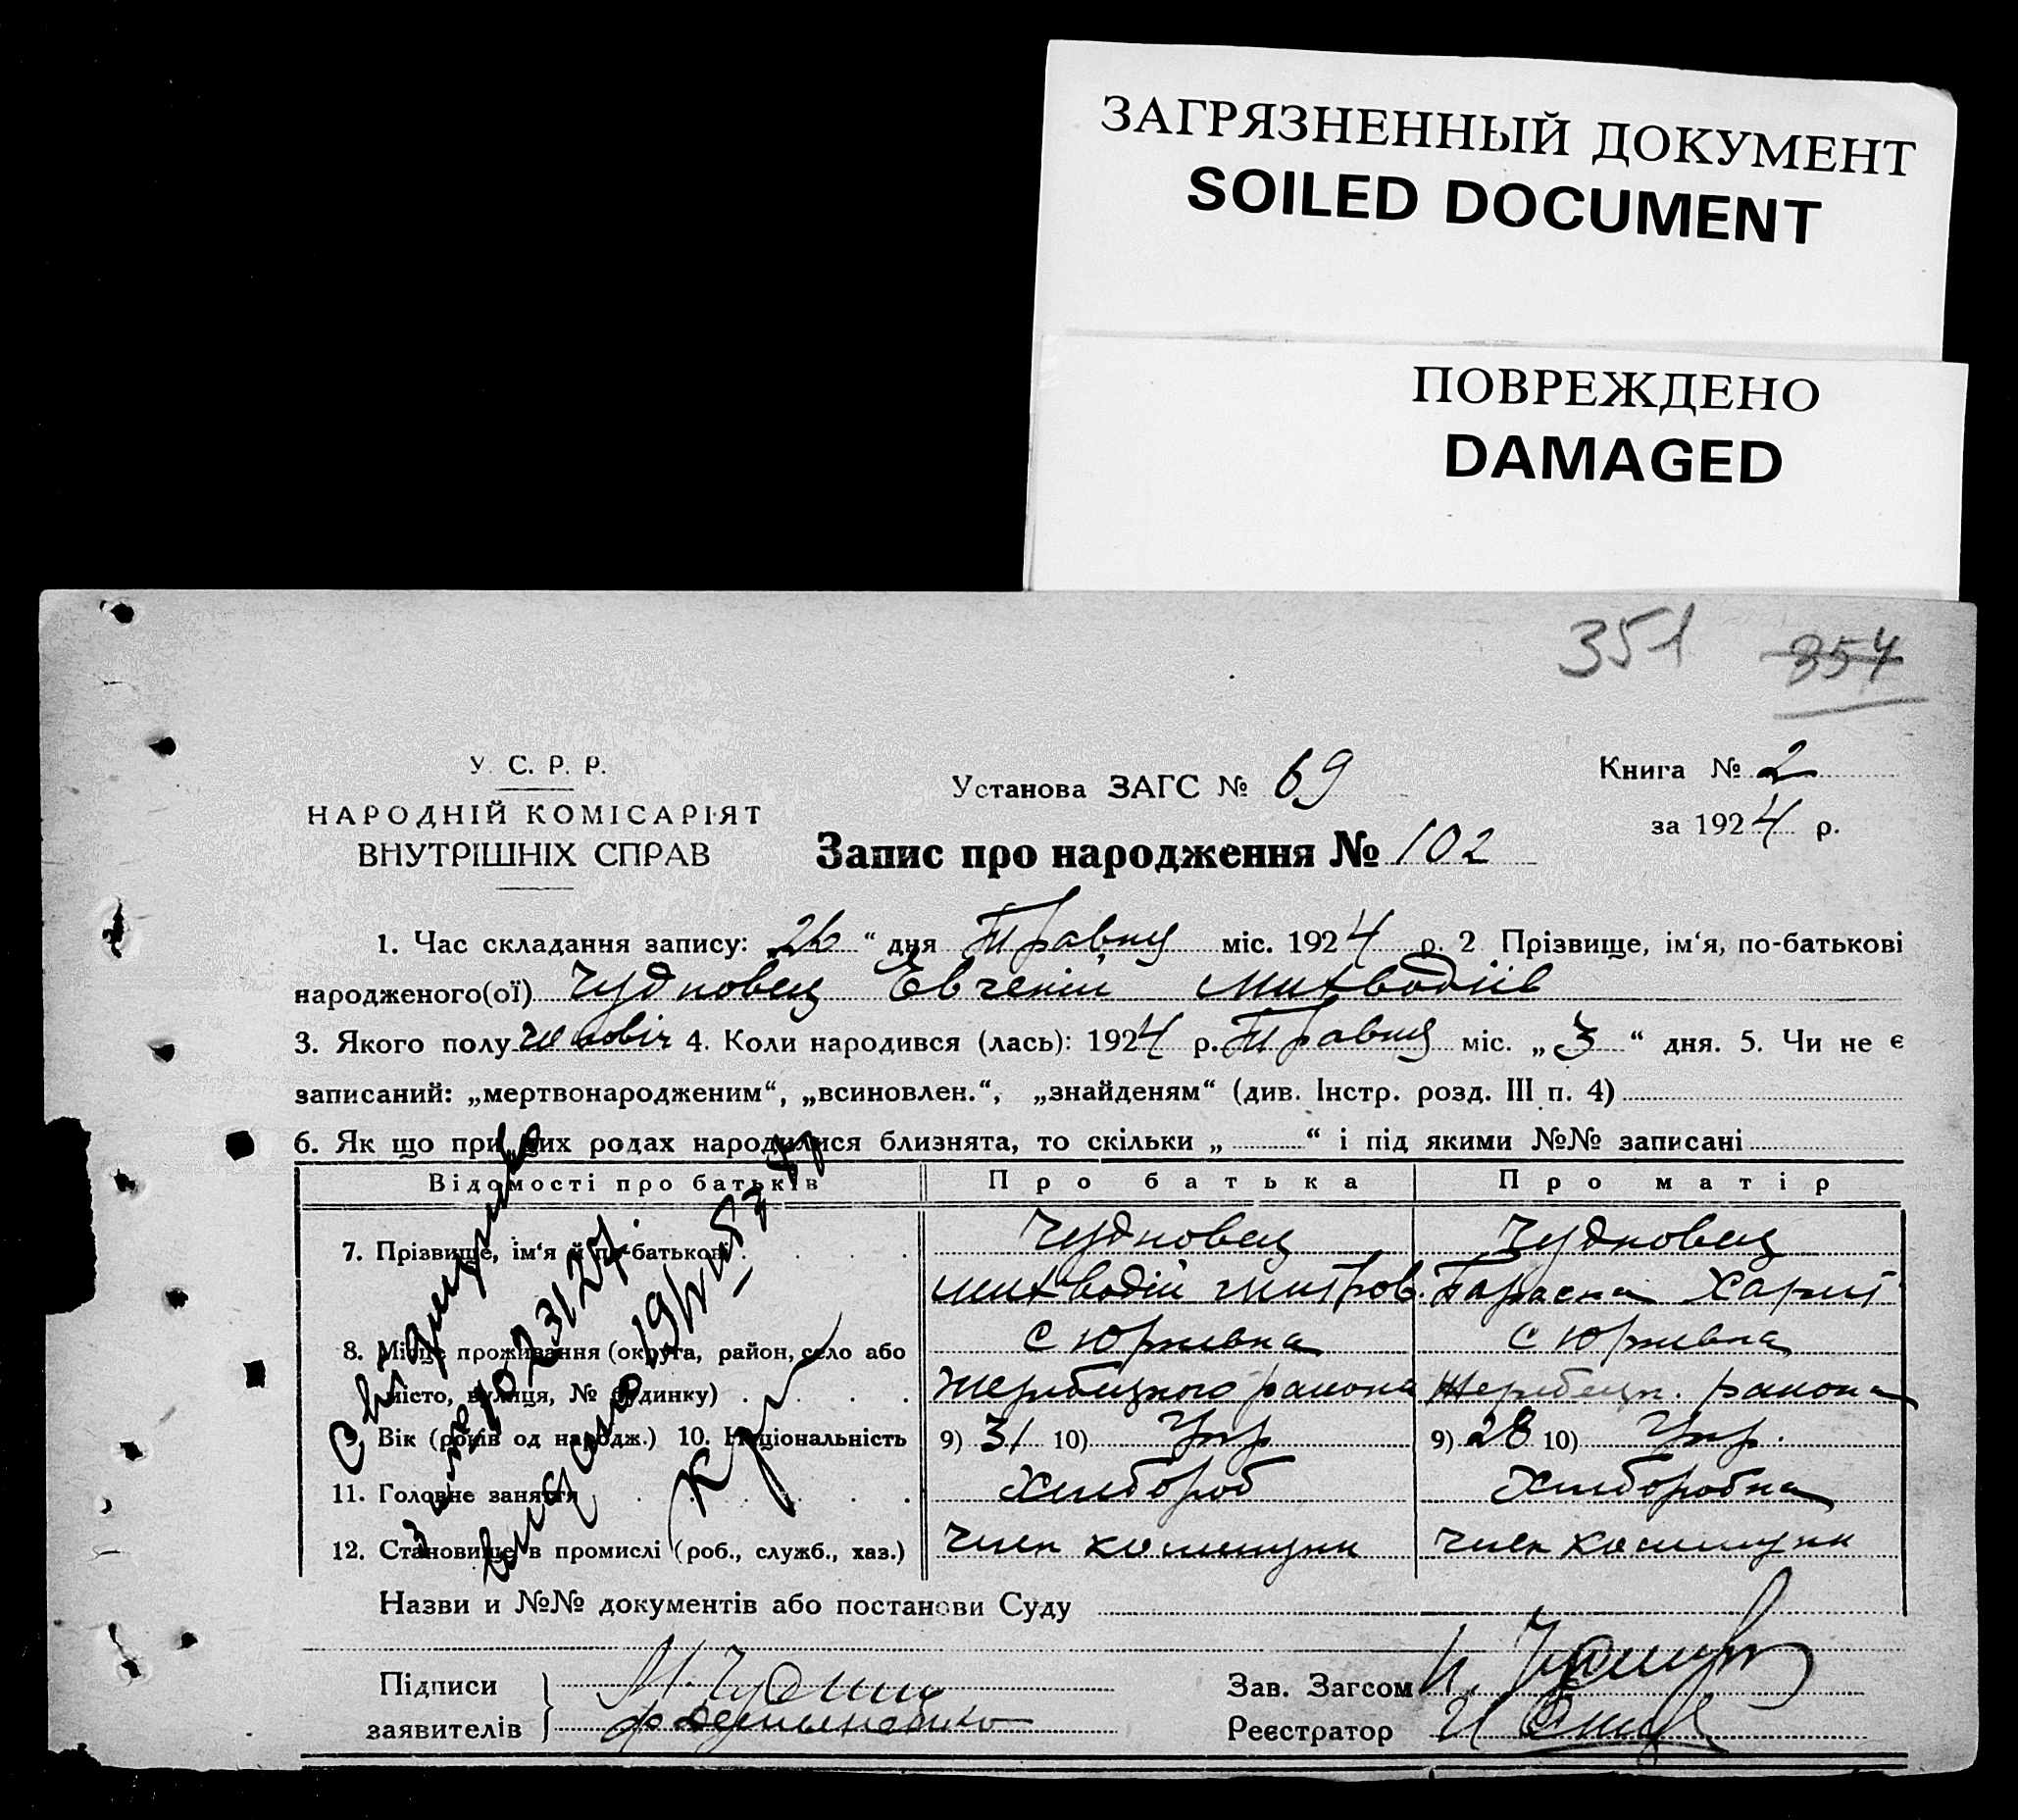 ЗАГРЯЗНЕННЫЙ ДОКУМЕНТ
SOILED DOCUMENT
ПОВРЕЖДЕНО
DAMAGED
351 354
У. С. Р. Р.
НАРОДНІЙ КОМІСАРІЯТ
ВНУТРІШНІХ СПРАВ
Установа ЗАГС № 69
Книга № 2
за 1924 р.
Запис про народження № 102
1. Час складання запису: 26 “ дня Травня міс. 1924 р. 2 Прізвище, ім‘я, по-батькові
народженого(ої) Чудновец Евгений
3. Якого полу чоловіч 4. Коли народився (лась): 1924 р. Травня міс. „ 3 “ дня. 5. Чи не є
записаний: „мертвонародженим“, „всиновлен.“, „знайденям“ (див. Інстр. розд. III п. 4)
6. Як що при цих родах народилися близнята, то скільки „ “ і під якими №№ записані
Відомості про батьків Про батька Про матір
7. Прізвище, ім‘я й по-батькові Чудновец Чудновец
Параска Харит
8. Місце проживання (округа, район, село або с Юрківка с Юрківка
місто, вулиця, № будинку) Жеребецкого района Жеребецк. района
9. Вік (років од народж.) 10. Національність 9) 31 10) Укр 9) 28 10) Укр.
11. Головне заняття Хлібороб Хліборобка
12. Становище в промислі (роб., служб., хаз.) член комуни член комуни
Назви и №№ документів або постанови Суду
Підписи
заявителів
Зав. Загсом
Реєстратор